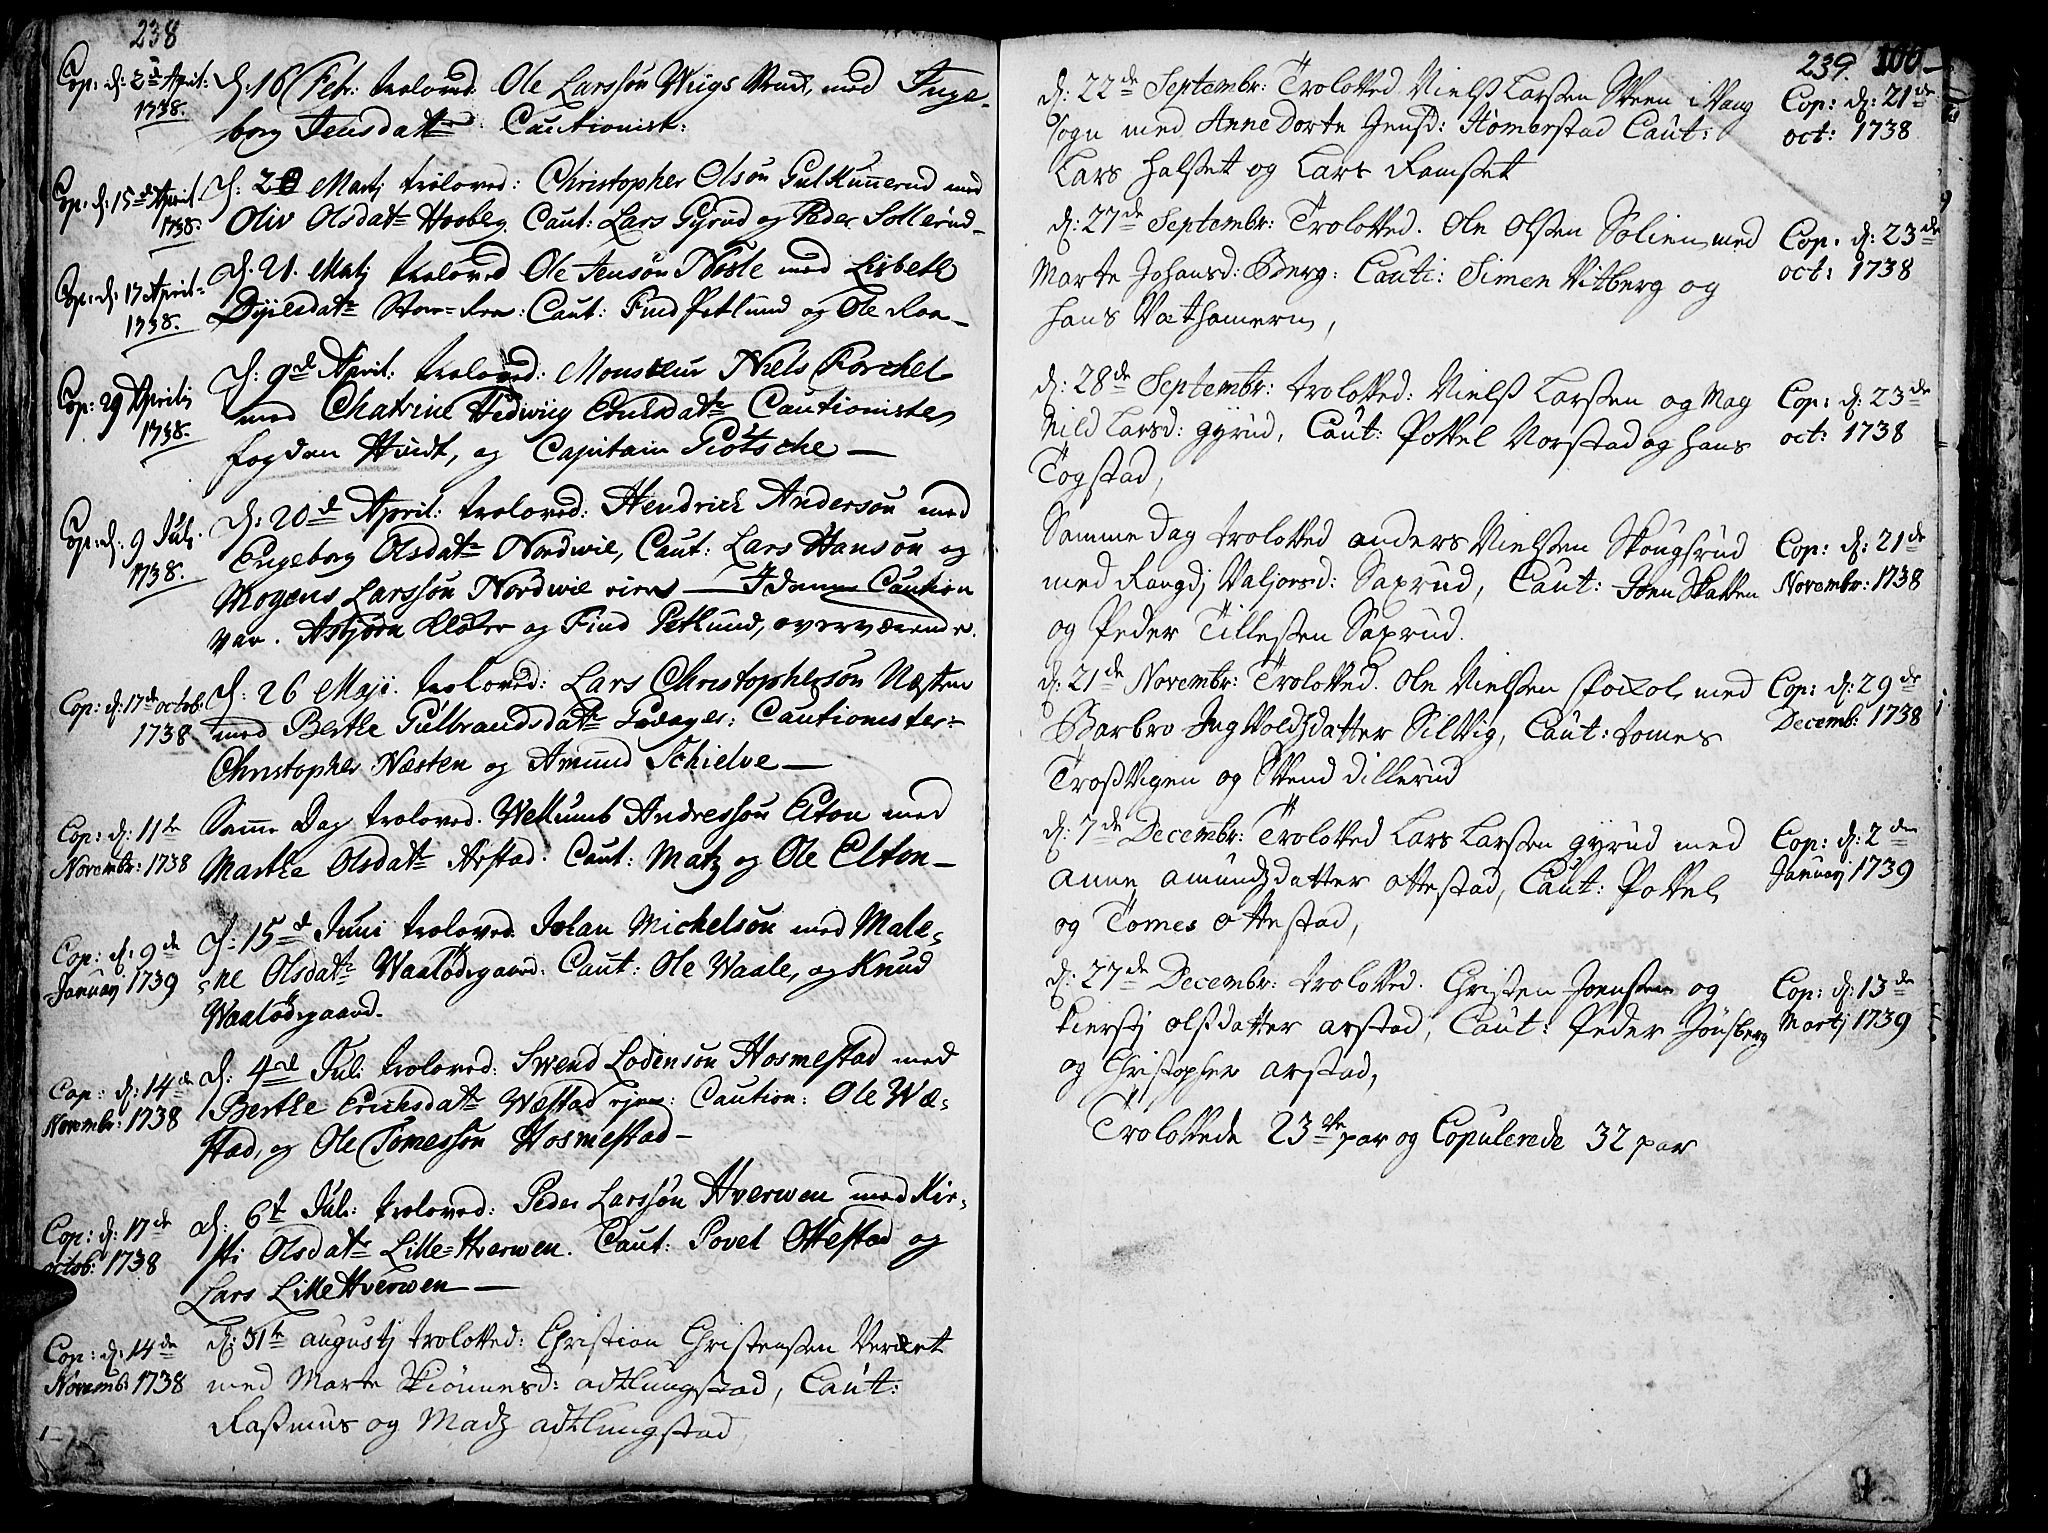 238
Cop: d: 2d April:
1738.
d: 16 Febr: troloved Ole Larssøn Wiigs Brud, med Inge-
borg Jensdattr Cautionist:
Cop: d: 15d April
1738.
d: 20 Martj troloved: Christopher Olsøn Gulkunnerud med
Oliv Olsdattr Hooberg. Caut: Lars Gyrud og Peder Sollerud
Cop: d: 17 April
1738.
d. 21. Martj troloved Ole Jensøn Nøsle med Lisbeth
Caut: Find Petlund og Ole Roe
Cop: 29 Aprilis
1738.
d: 9d April: troloved: Monsieur Niels Forchel
med Chatrine Hedwiig Cautionister
fogden Hvidt, og Capitain Gøtsche
Cop: d: 9 Juli
1738.
d: 20d April: troloved: Hendrich Andersøn med
Engeborg Olsdattr Nordwie, Caut: Lars Hansøn og
Mogens Larssøn Nordwie eien I denne Caution
var. Asbjørn Kløkre og Find Petlund, overværende.
Cop: d: 17de octob:
1738
d: 26 Maji. troloved: Lars Christophersøn Næsten
med Berthe Gulbrandsdattr Cautionister:
Christopher Næsten og Amund Schielve
Cop: d: 11te
Novembr: 1738
Samme Dag troloved. Wellumb Andressøn Elton med
Marthe Olsdattr Arstad. Caut: Matz og Ole Elton
Cop: d: 9de
Januarj 1739
d: 15d Juni troloved. Johan Michelsøn med Male-
ne Olsdattr Waalødegaard: Caut: Ole Waale, og Knud
Waalødegaard.
Cop: d: 14de
Novembr: 1738
d. 4de Juli troloved: Swend Lodensøn Hosmestad med
Berthe Erichsdattr Wæstad ejen: Caution: Ole Wæ-
stad, og Ole Tomessøn Hosmestad
Cop: d: 17de
octob: 1738
d: 6t Juli: troloved: Peder Larssøn Hverwen med Kir-
sti Olsdattr Lille-Hverwen. Caut: Povel Ottestad og
Lars Lille Hverwen
Cop: d: 14de
Novemb: 1738
d: 31te augustj troloved: Christian Christensen
med Marte Skiønnesd: adtlungstad, Caut:
Rasmus og Madz adtlungstad
239. 100
d: 22de Septembr: Troloved Niels Larsen Steen i Wang
sogn med Anne Dorte Jensd: Hommerstad Caut:
Lars Halset og Lars Ramset
Cop: d: 21de
oct: 1738
d: 27de Septembr: Troloved. Ole Olsen Solien med
Marte Johansd: Berg: Caut: Simen Vitberg og
Hans Vathamern,
Cop. d: 23de
oct: 1738
d: 28de Septembr: troloved: Niels Larsen og Mag
nild Larsd: gyrud, Caut: Povel Norstad og Hans
Togstad,
Cop: d: 23de
oct: 1738
Samme Dag troloved anders Nielsen Skougsrud
med Rangdj Valjorsd: Saxrud, Caut: Joen Skatten
og Peder Tillesen Saxrud.
Cop: d: 21de
Novembr: 1738
d: 21de Novembr: Troloved. Ole Nielsen med
Barbro Ingvoldsdatter Silvig, Caut: tomes
Trosvigen og Svend Dillerud
Cop: d: 29de
Decemb: 1738
d: 7de Decembr: Troloved Lars Larsen gyrud med
anne amundzdatter ottestad, Caut: Povel
og Tomes ottestad,
Cop: d: 2den
Januarj 1739
d: 27de Decembr: troloved. Christen Joensen og
Kierstj olsdatter arstad, Caut: Peder Jønsberg
og Christopher arstad,
Cop: d: 13de
Martj 1739
Trolovede 23de par og Copulerede 32 par